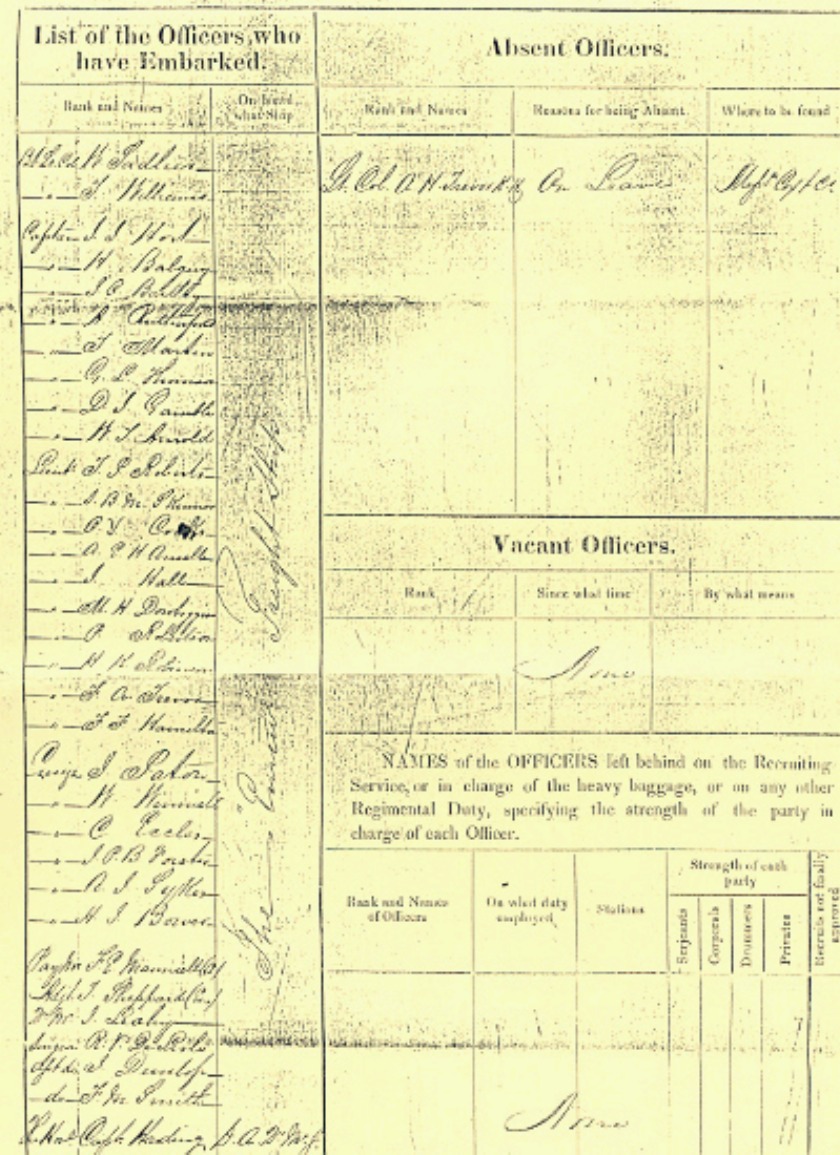 List of the Officers who
have Embarked.
Rank and Names
On board
what Ship
Bt Lt Col W Sadlier
" J Williams
Captain J J Hort
" H Balguy
" J C Bartley
" A
" T Martin
" G L Thomson
" D J Gamble
" W T Arnold
Lieut T J Roberts
" J B M Skinner
" O Y Cocks
" A C H
" J Hall
" M H Dowbiggin
" P Robertson
" H K
" F A Trevor
" F F Hamilton
Ensign J Paton
" W
" C Eccles
" J P B Forster
" A J Sykes
" H J Bowers
Paymr F E
Adjt T Sheppard (Ens)
Qr Mr J Leahy
Surgeon R V De Lisle
Asst do J Dunlop
do F M Smith
Capt Harding D. A. Qr Mr G.
The Freight Ship
Absent Officers.
Rank and Names
Reasons for being Absent.
Where to be found
Lt Col A H Trevor KH On Leave
Vacant Officers.
Rank
Since what time
By what means
None
NAMES of the OFFICERS left behind on the Recruiting
Service, or in charge of the heavy baggage, or on any other
Regimental Duty, specifying the strength of the party in
charge of each Officer.
Rank and Names
of Officers
On what duty
employed
Stations
Strength of each
party
Serjeants
Corporals
Drummers
Privates
Recruits not finally
approved
None